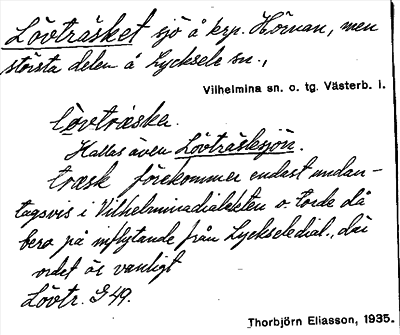 Lövträsket sjö å krp. Hörnan, men
största delen å Lycksele sn.,
Vilhelmina sn. o. tg. Västerb. l.
lövtràska.
Kallas även Lövträsksjön.
träsk förekommer endast undan-
tagsvis i Vilhelminadialekten o. torde då
bero på inflytande från Lyckseledial., där
ordet är vanligt
Lövtr. G 49.
Thorbjörn Eliasson, 1935.